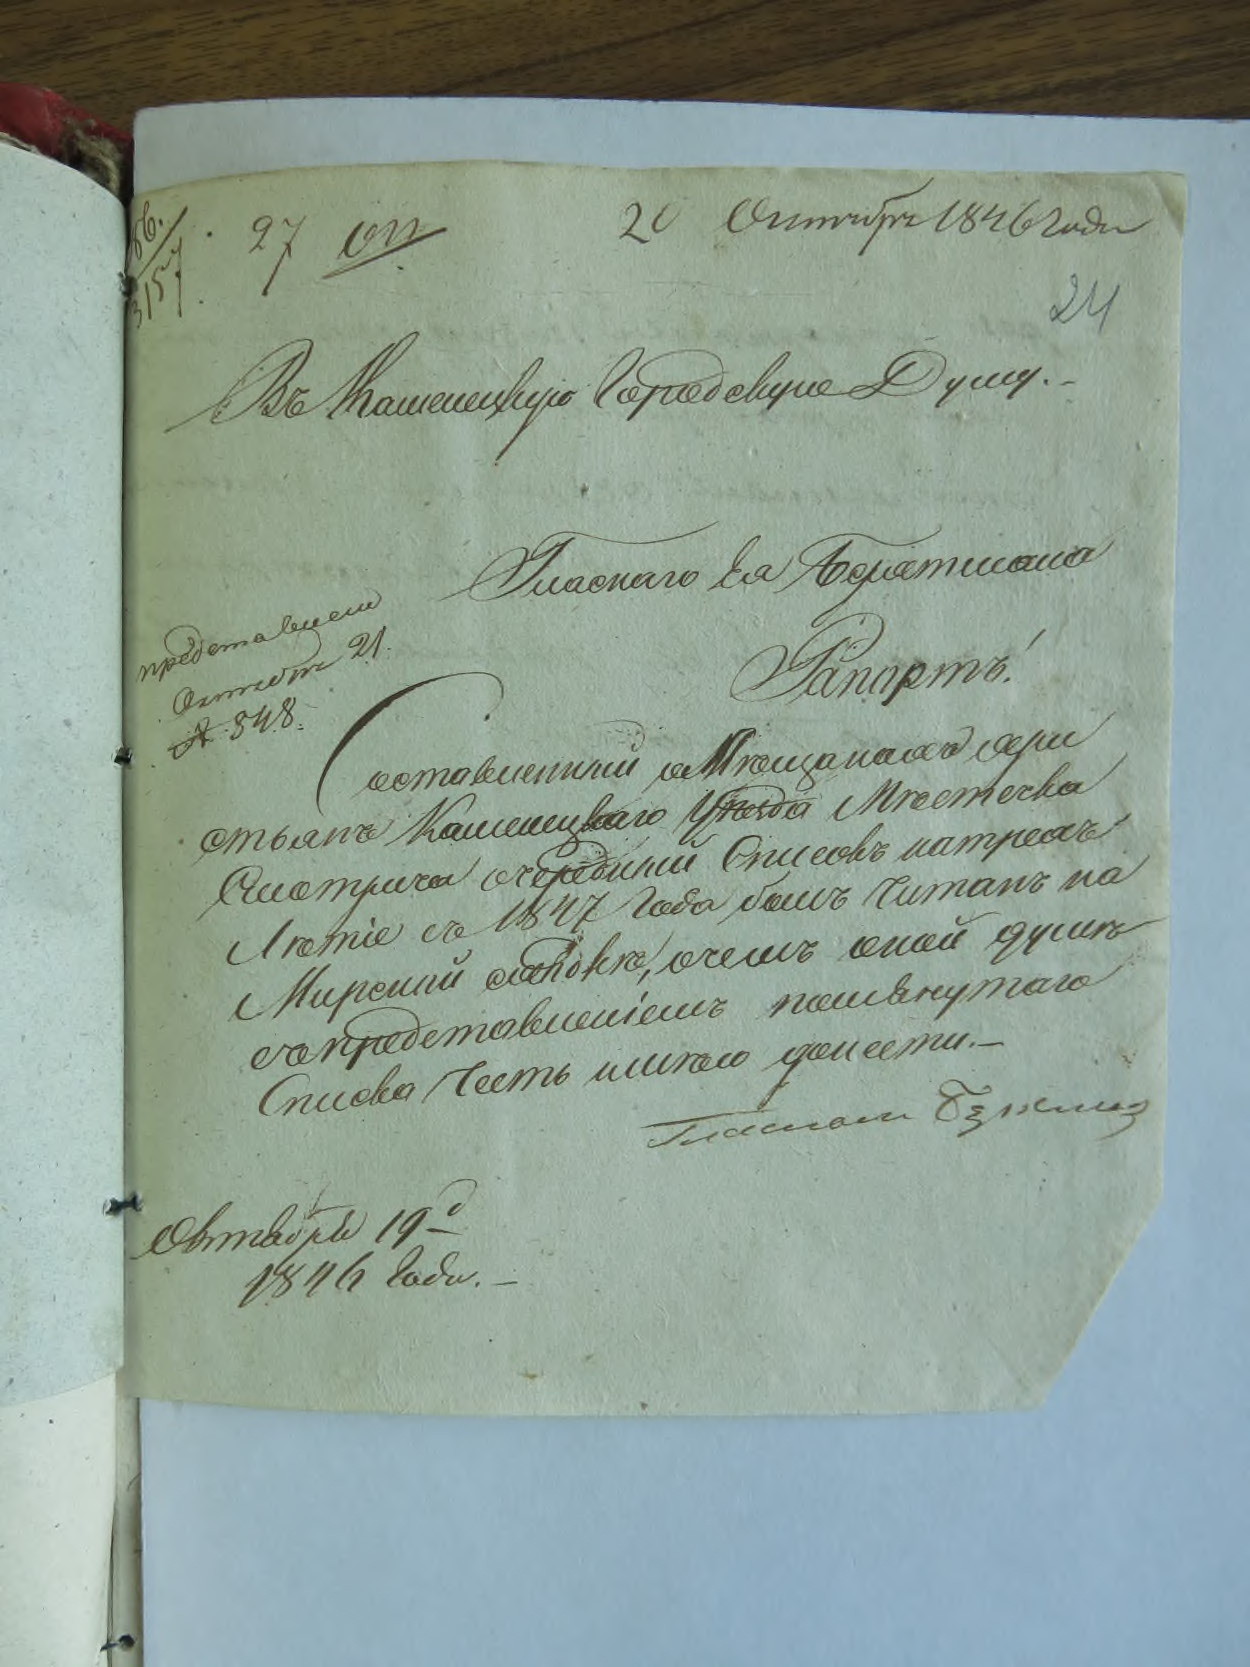 3157
27
20 Октября 1846 года
24
Въ Каменецкую Городскую Думу.-
Гласнаго Ея
Рапортъ!
представлен
Октября 21.
№ 848.
Составленный о Мещанахъ Хри
стьянъ Каменецкаго Уезда Местечка
Смотрича очередный Списокъ натрехъ
Летіе съ 1847 Года былъ Читанъ на
Мирский сходке, очемъ оной думе
съпредставленіемъ помянутаго
Списка Честь имею донести.-
Гласной
Октября 19 д
1846 Года.-